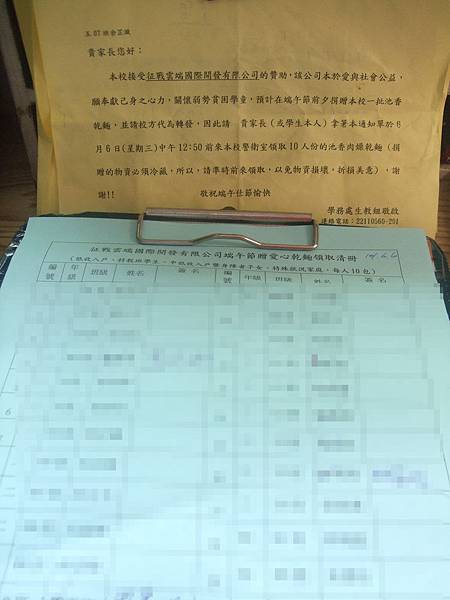 貴家長您好：
本校接受征戰雲端國際開發有限公司的贊助，該公司本於愛與社會公益，
願奉獻己身之心力，關懷弱勢貧困學童，預計在端午節前夕捐贈本校一批池香
乾麵，並請校方代為轉發，因此請　貴家長（或學生本人）拿著本通知單於6
月6日(星期三)中午12:50前來本校警衛室領取10人份的池香肉燥乾麵（捐
贈的物資必須冷藏，所以，請準時前來領取，以免物資損壞，折損美意），謝
謝!!
敬祝端午佳節愉快
學務處生教組敬啟
連絡電話：22110560-201
征戰雲端國際開發有限公司端午節贈愛心乾麵領取清冊
(低收入戶、特教班學生、中低收入戶暨身障者子女、特殊狀況家庭，每人10包)
編號 年級 班級 姓名 簽名 編號 年級 班級 姓名 簽名
6